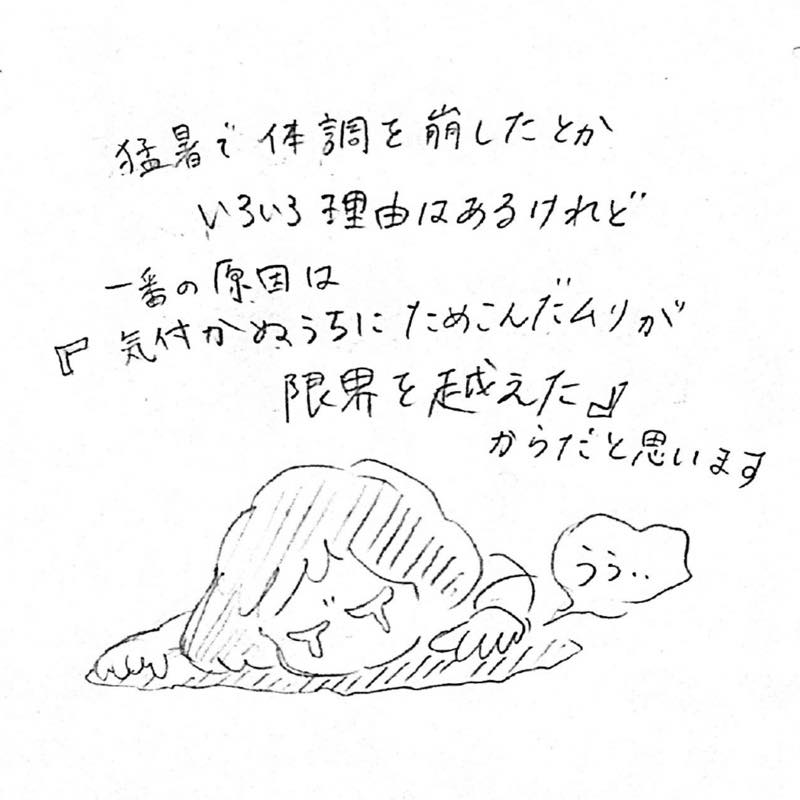 猛暑で体調を崩したとか
いろいろ理由はあるけれど
一番の原因は
『気付かぬうちにためこんだムリが
限界を越えた』
からだと思います
うぅ..